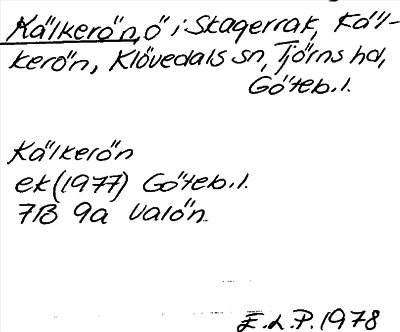 Kälkerön, ö i Skagerrak, Käl-
kerön, Klövedals sn, Tjörns hd,
Göteb. l.
Kälkerön
ek (1977) Göteb. l.
7B 9a Valön
E.L.P. 1978